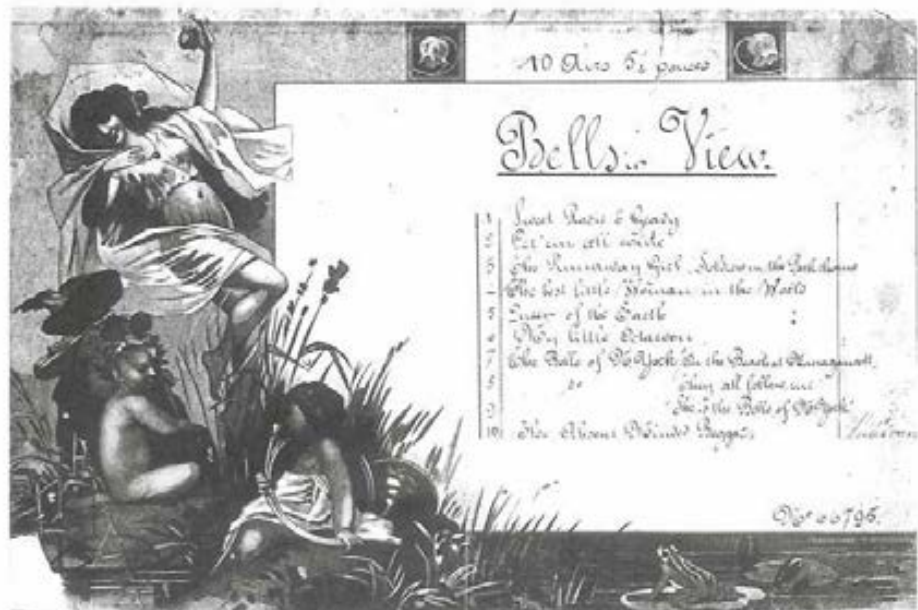 10 Airs 5½ pouces
Bells in View.
1 Sweet Rosie O'Grady
2
3 The Runaway Girl. Soldiers in the Park chorus
4 The best little Woman in the World
5 Queen of the Earth
6 My little Octoroon
7 The Belle of N York On the Beach at Narragansett
8 do "They all follow me"
9 "She is the Belle of N York"
10 The Absent Minded Beggar